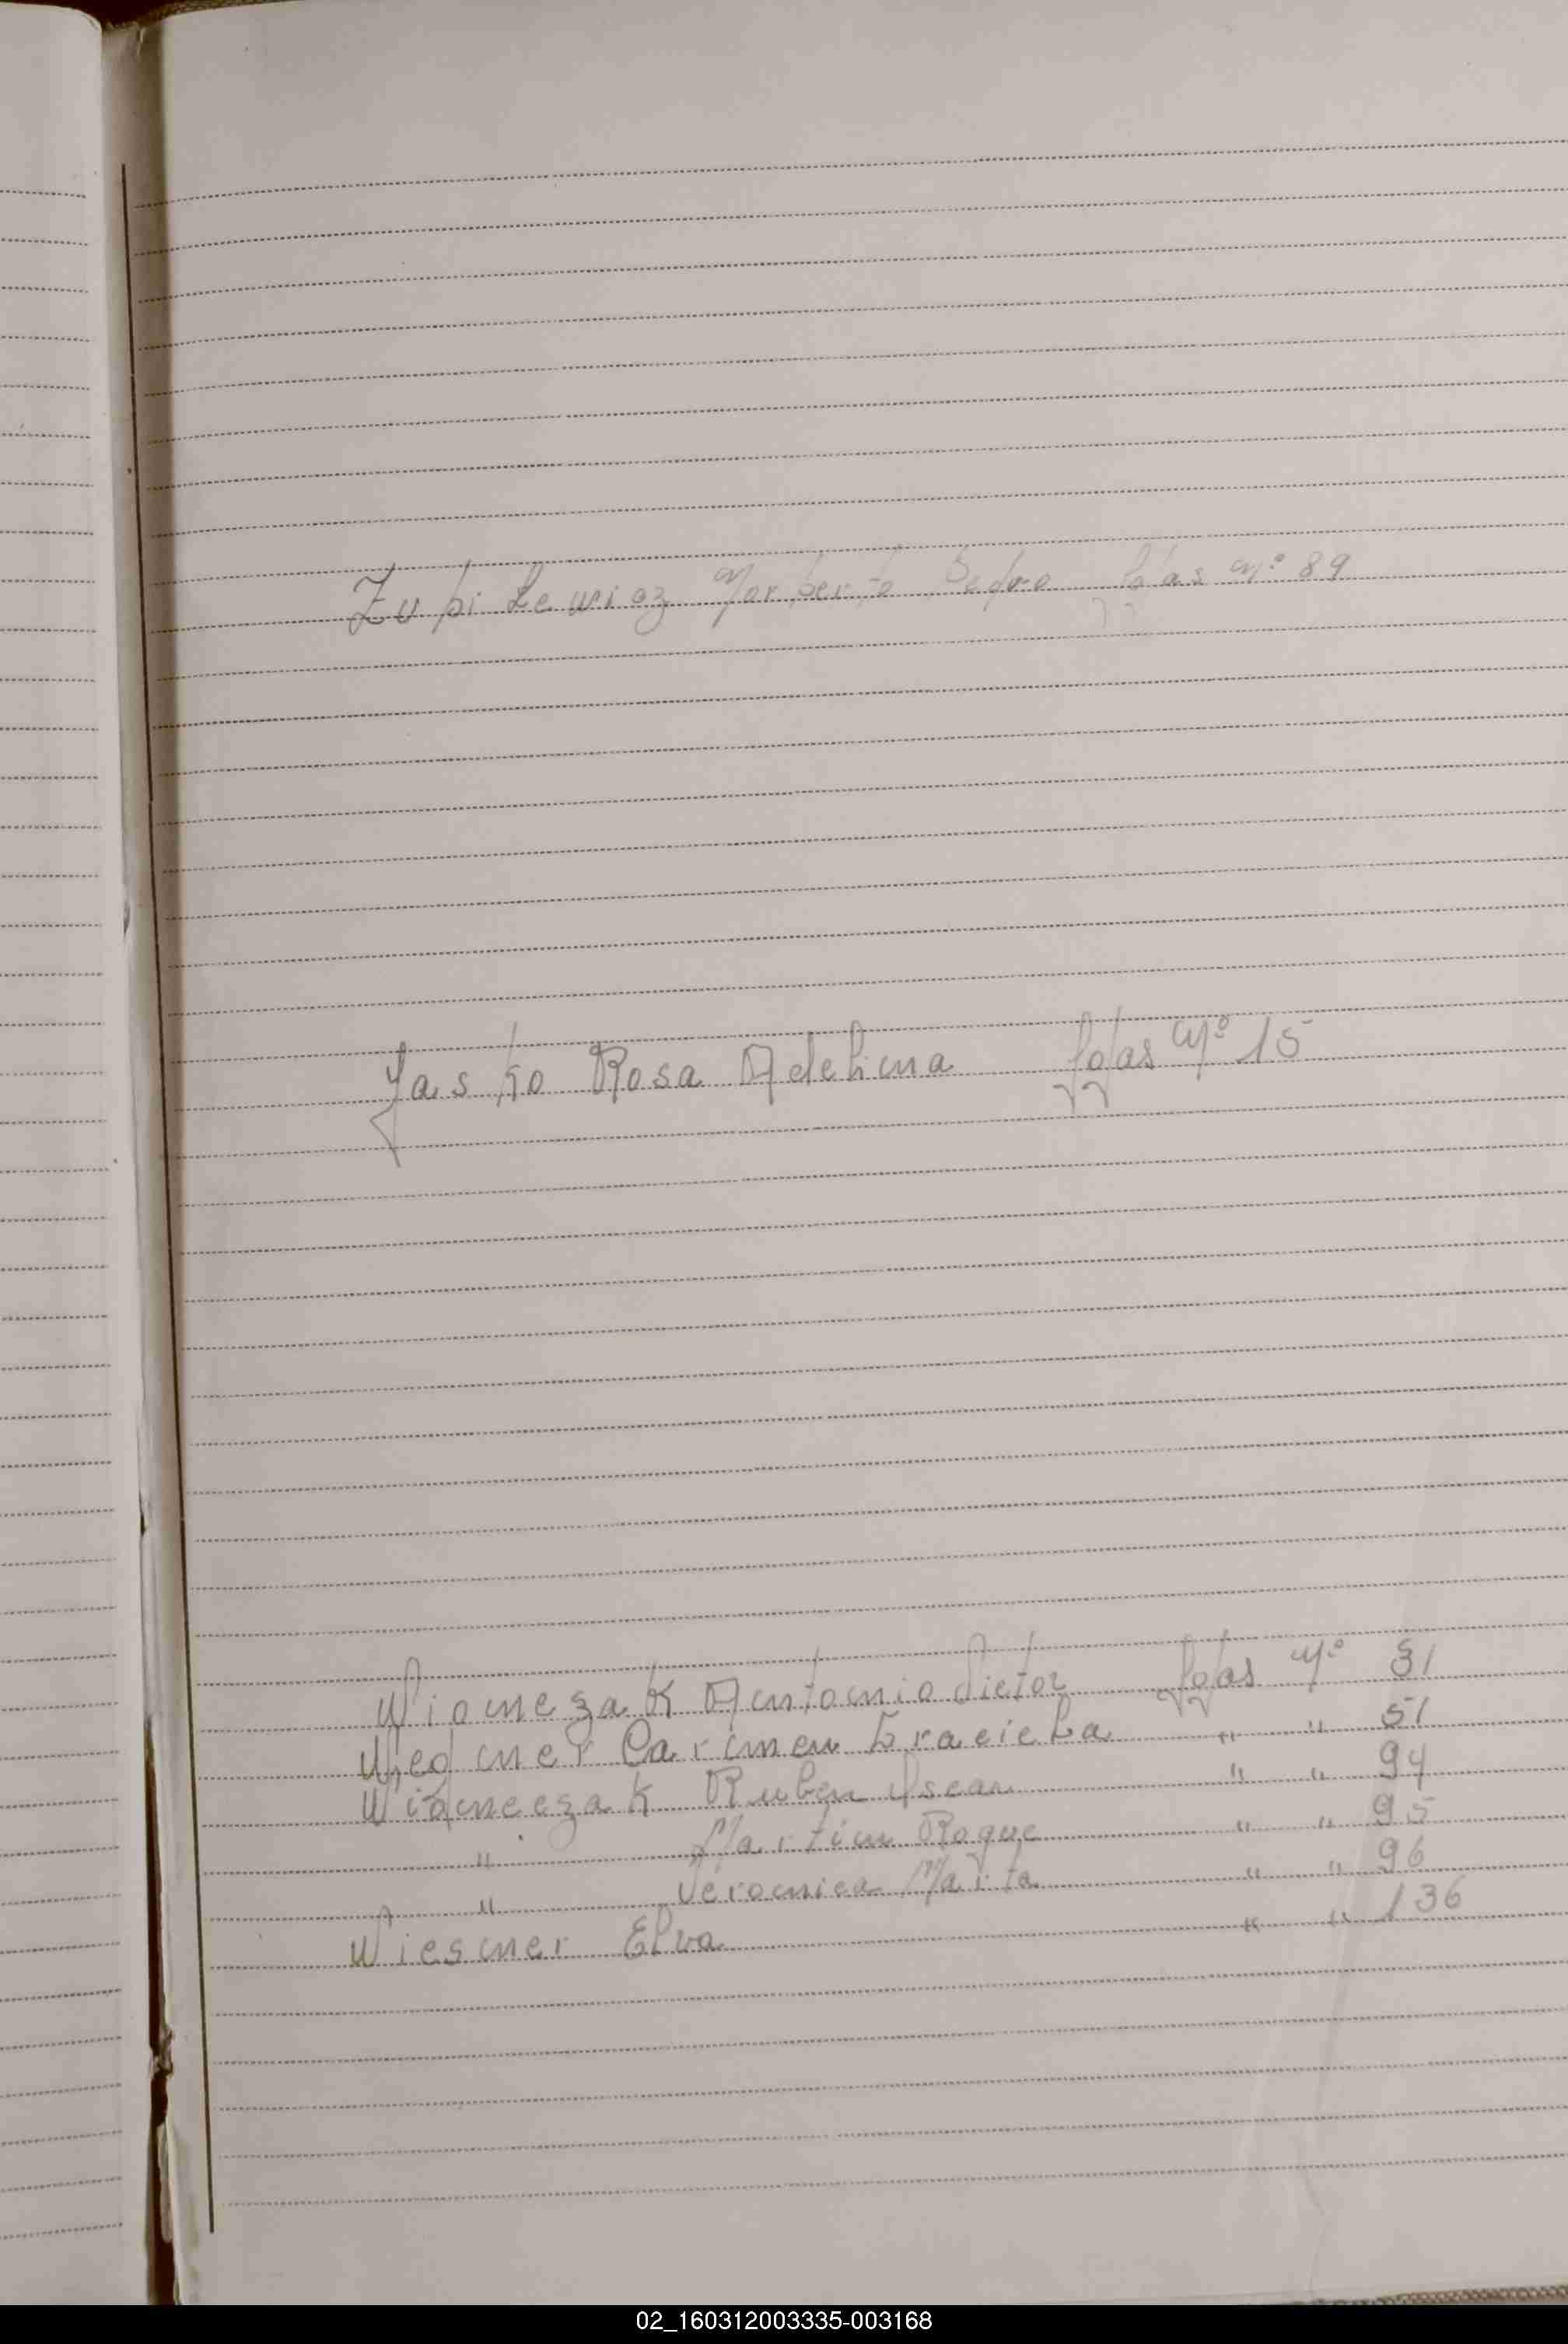 Zubilewicz Norberto Pedro fojas Nº 89
Yasko Rosa Adelina fojas Nº 15
Wionczak Antonio Victor fojas Nº 31
Wegner Carmen Graciela " " 51
Wionczak Ruben Oscar " " 94
" Martin Roque " " 95
" Veronica Marta " " 96
Wiesner Elva " " 136
02_160312003335-003168